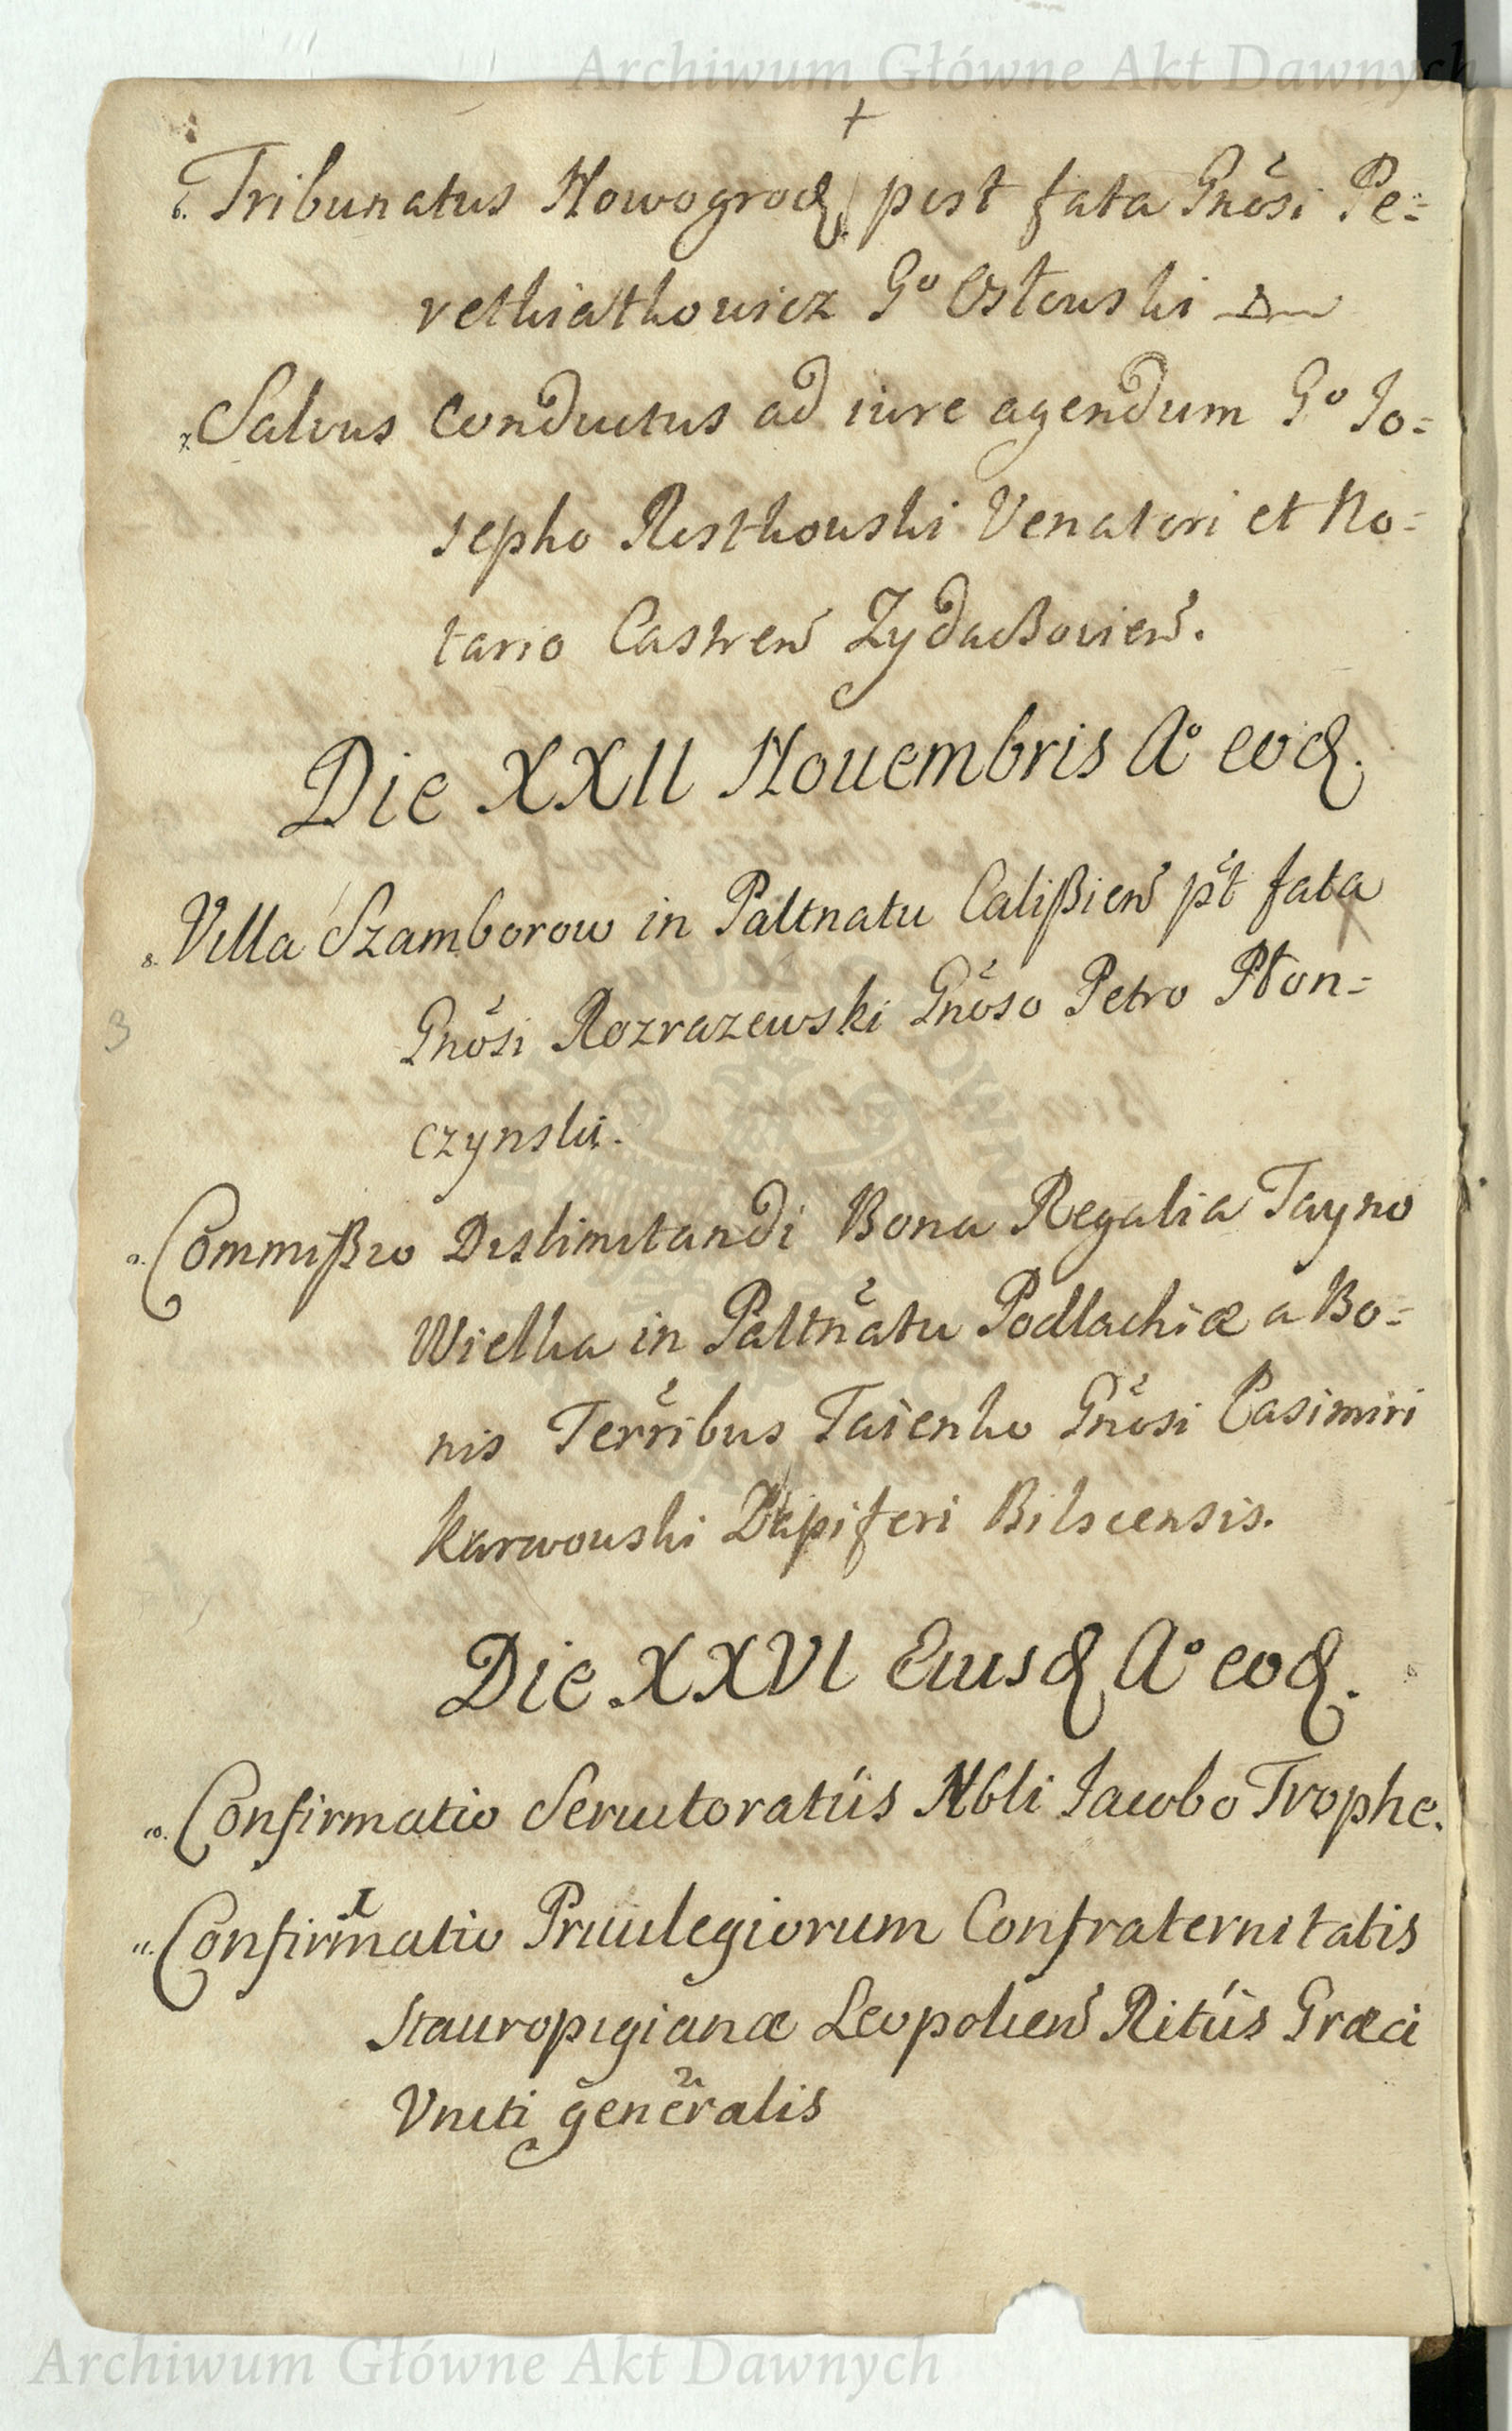 Archiwum Główne Akt Dawnych
6. Tribunatus Nowogrod, post fata Gnosi Pe=
rethiathowicz Go Ostowski
7. Salvus Conductus ad iure agendum Go Jo=
sepho Rosthowski Venatori et No=
tario Castren Zydaczovien.
Die XXII Nouembris Ao eod.
8. Villa Szamborow in Paltnatu Calißien pt fata
Gnosi Rozrazewski Gnoso Petro Płon=
czynski.
3
9. Commißio Dislimitandi Bona Regalia Tayno
Wielka in Paltnatu Podlachiæ a Bo=
nis Terribus Taienko Gnosi Casimiri
Karwowski Dapiferi Bilscensis.
Die XXVI Eiusd Ao eod.
10. Confirmatio Seruitoratûs Nbli Jacobo Trophe.
11. Confirmatio Priuilegiorum Confraternitatis
Stauropigianæ Leopolien Ritûs Græci
Vniti generalis
Archiwum Główne Akt Dawnych